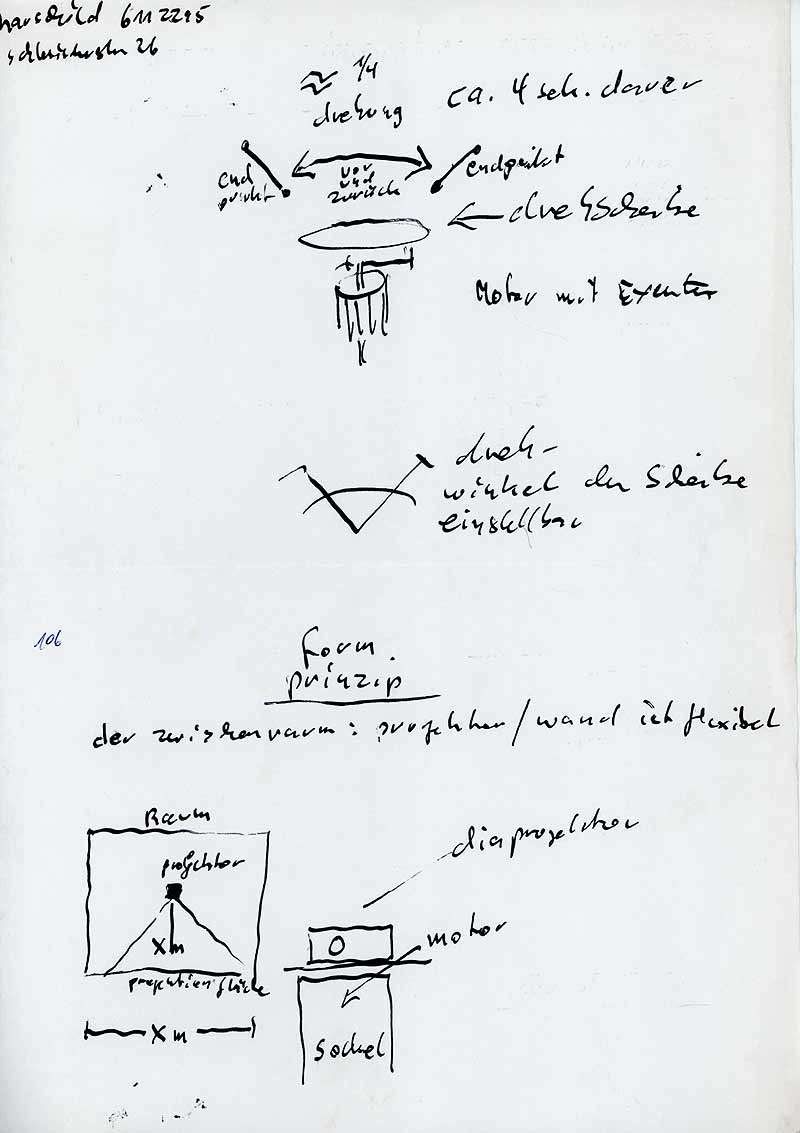 6112295
26
≈ 1/4
drehung
ca. 4 sek. dauer
end
punkt
vor
und
zurück
endpunkt
drehscheibe
Motor mit Exenter
dreh-
winkel der Scheibe
einstellbar
106
form
prinzip
der zwischenraum: projektor/wand ist flexibel
Raum
projektor
X m
projektionsfläche
X m
diaprojektor
motor
Sockel